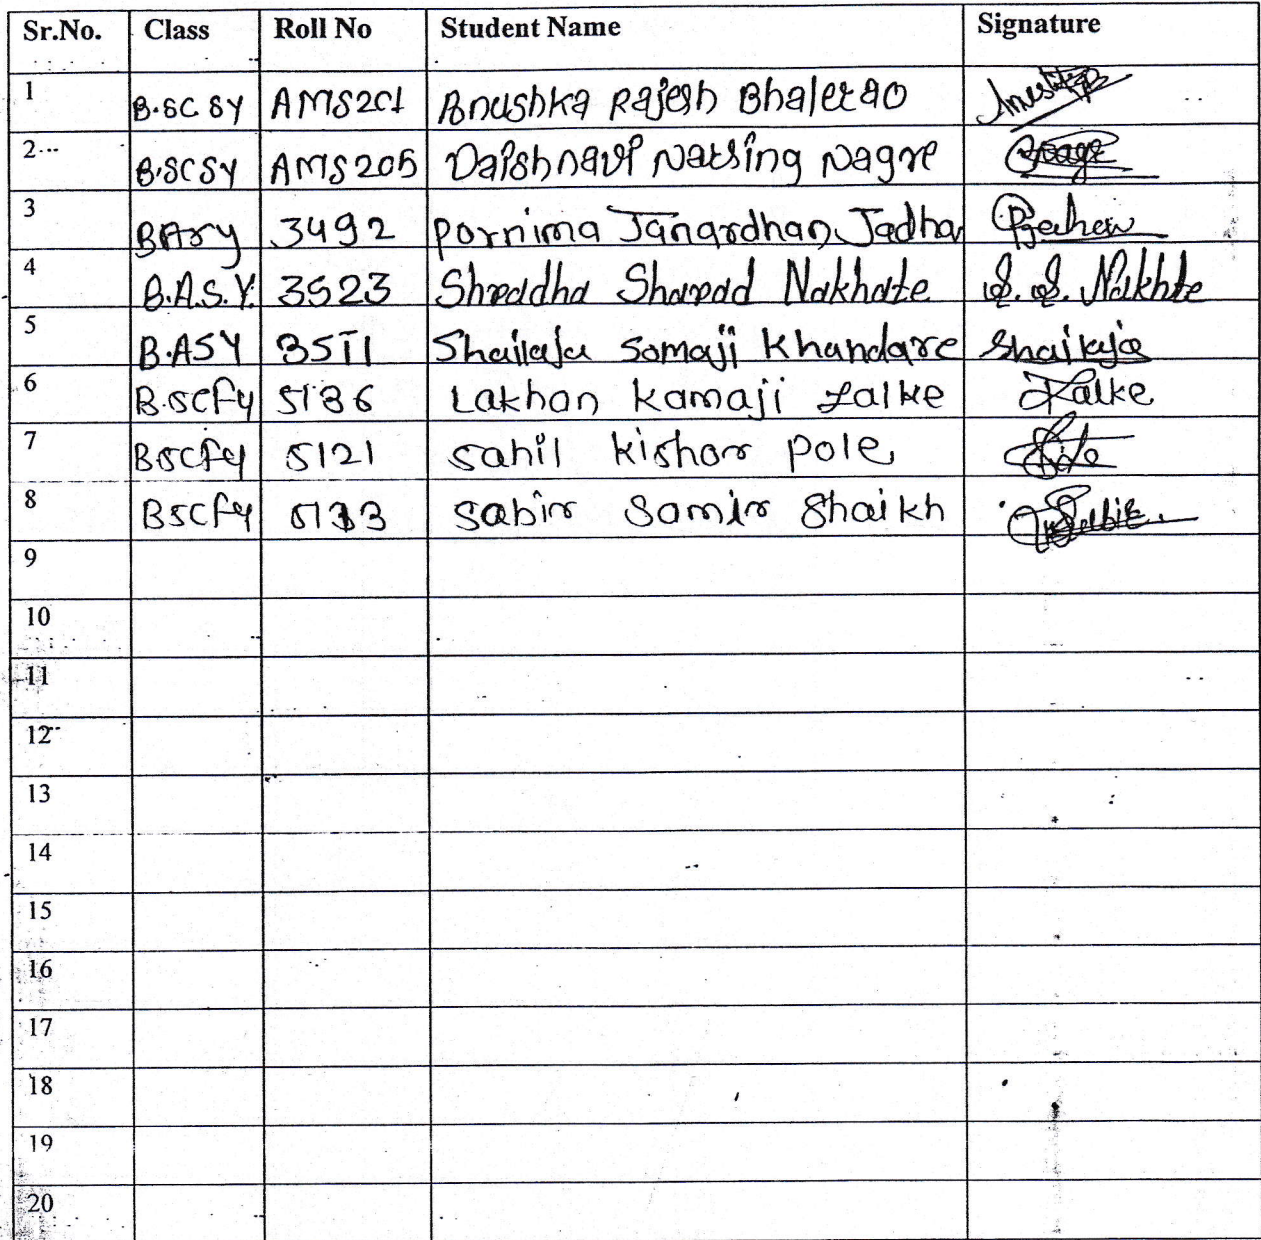 Sr.No. Class Roll No Student Name Signature
1 B.SC SY AMS201 Anushka Rajesh Bhalerao
2 B.SCSY AMS205 Vaishnavi Narsing Nagre
3 BASY 3492 Pornima Janardhan Jadha
4 B.A.S.Y. 3523 Shraddha Sharad Nakhate S. S. Nakhte
5 B.ASY 3511 Shailaja Somaji Khandare Shailaja
6 B.SCFY 5136 Lakhan Kamaji Zalke Zalke
7 BSCFY 5121 Sahil Kishor Pole
8 BSCFY 5133 Sabir Samir Shaikh
9
10
11
12
13
14
15
16
17
18
19
20